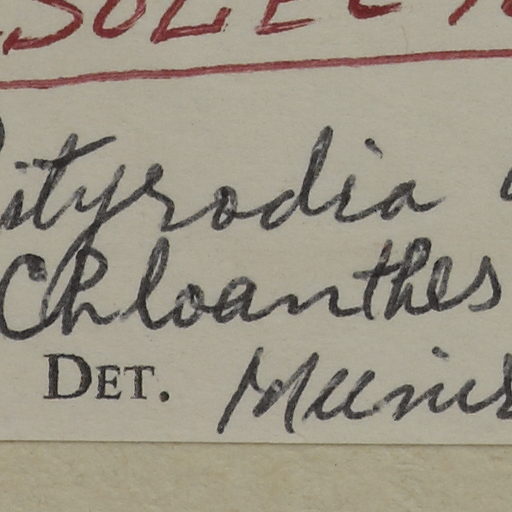 ityrodia
Chloanthes
DET. Munir